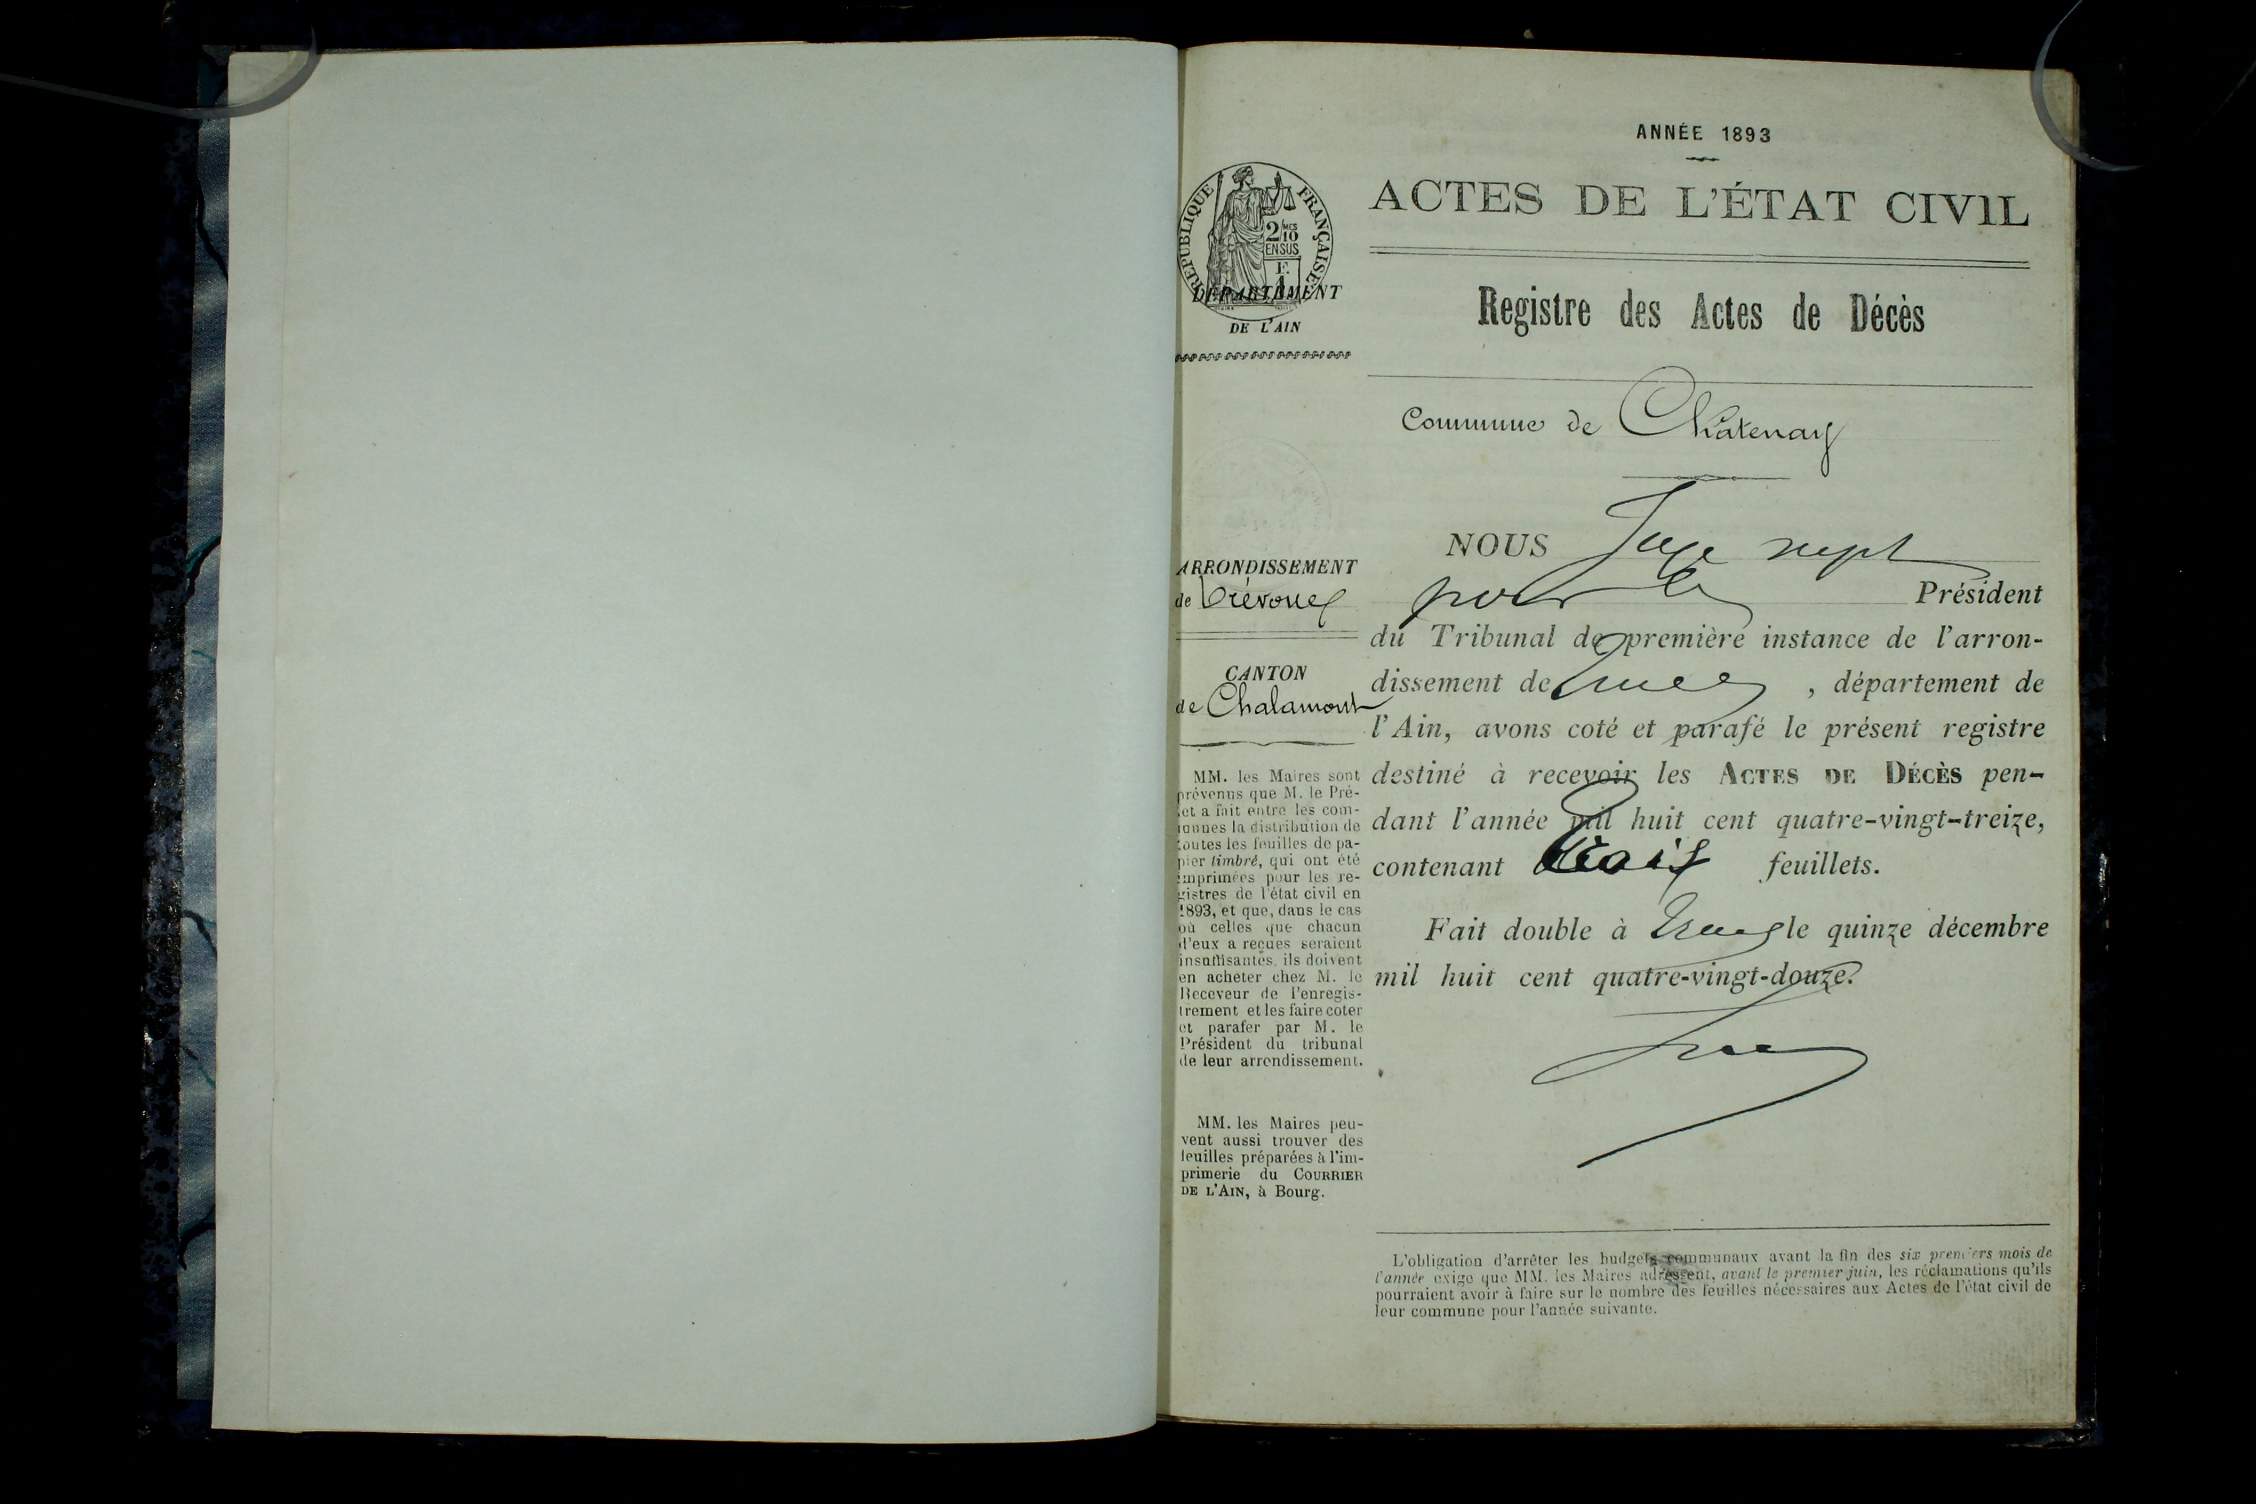 ANNÉE 1893
ACTES DE L'ÉTAT CIVIL
RÉPUBLIQUE FRANÇAISE
2/10 MES
EN SUS
F.
1
DÉPARTEMENT
DE L'AIN
Registre des Actes de Décès
Commune de Châtenay
ARRONDISSEMENT
de Trévoux
CANTON
de Chalamont
MM. les Maires sont
prévenus que M. le Pré-
fet a fait entre les com-
munes la distribution de
toutes les feuilles de pa-
pier timbré, qui ont été
imprimées pour les re-
gistres de l'état civil en
1893, et que, dans le cas
où celles que chacun
d'eux a reçues seraient
insuffisantes, ils doivent
en acheter chez M. le
Receveur de l'enregis-
trement et les faire coter
et parafer par M. le
Président du tribunal
de leur arrondissement.
MM. les Maires peu-
vent aussi trouver des
feuilles préparées à l'im-
primerie du COURRIER
DE L'AIN, à Bourg.
NOUS Juge suppt
pour le Président
du Tribunal de première instance de l'arron-
dissement de Trévoux, département de
l'Ain, avons coté et parafé le présent registre
destiné à recevoir les ACTES DE DÉCÈS pen-
dant l'année mil huit cent quatre-vingt-treize,
contenant trois feuillets.
Fait double à Trévoux le quinze décembre
mil huit cent quatre-vingt-douze.
L'obligation d'arrêter les budgets communaux avant la fin des six premiers mois de
l'année exige que MM. les Maires adressent, avant le premier juin, les réclamations qu'ils
pourraient avoir à faire sur le nombre des feuilles nécessaires aux Actes de l'état civil de
leur commune pour l'année suivante.